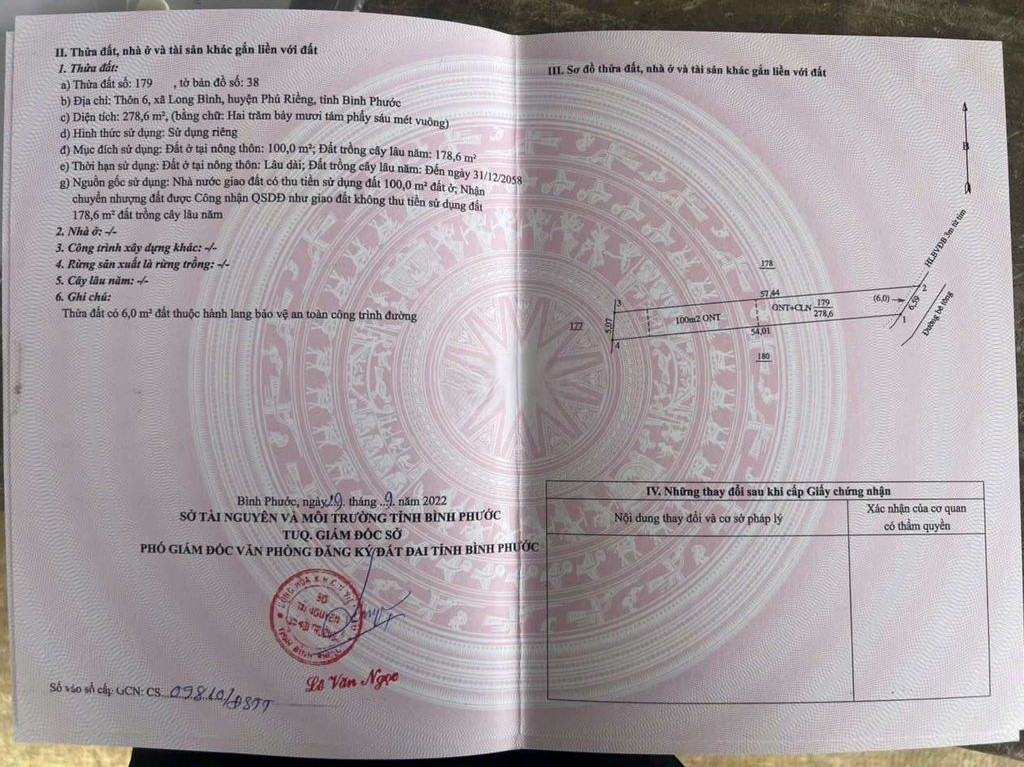 II. Thửa đất, nhà ở và tài sản khác gắn liền với đất
1. Thửa đất:
a) Thửa đất số: 179 , tờ bản đồ số: 38
b) Địa chỉ: Thôn 6, xã Long Bình, huyện Phú Riềng, tỉnh Bình Phước
c) Diện tích: 278,6 m², (bằng chữ: Hai trăm bảy mươi tám phẩy sáu mét vuông)
d) Hình thức sử dụng: Sử dụng riêng
đ) Mục đích sử dụng: Đất ở tại nông thôn: 100,0 m²; Đất trồng cây lâu năm: 178,6 m²
e) Thời hạn sử dụng: Đất ở tại nông thôn: Lâu dài; Đất trồng cây lâu năm: Đến ngày 31/12/2058
g) Nguồn gốc sử dụng: Nhà nước giao đất có thu tiền sử dụng đất 100,0 m² đất ở; Nhận
chuyển nhượng đất được Công nhận QSDĐ như giao đất không thu tiền sử dụng đất
178,6 m² đất trồng cây lâu năm
2. Nhà ở: -/-
3. Công trình xây dựng khác: -/-
4. Rừng sản xuất là rừng trồng: -/-
5. Cây lâu năm: -/-
6. Ghi chú:
Thửa đất có 6,0 m² đất thuộc hành lang bảo vệ an toàn công trình đường
Bình Phước, ngày 19 tháng 9 năm 2022
SỞ TÀI NGUYÊN VÀ MÔI TRƯỜNG TỈNH BÌNH PHƯỚC
TUQ. GIÁM ĐỐC SỞ
PHÓ GIÁM ĐỐC VĂN PHÒNG ĐĂNG KÝ ĐẤT ĐAI TỈNH BÌNH PHƯỚC
SỞ
TÀI NGUYÊN
VÀ MÔI TRƯỜNG
TỈNH BÌNH PHƯỚC
Lê Văn Ngọc
Số vào sổ cấp GCN: CS 09810/ĐSTT
III. Sơ đồ thửa đất, nhà ở và tài sản khác gắn liền với đất
B
HLBVĐB 3m từ tim
178
57,44
2
(6,0)
6,59
3
ONT+CLN 179
278,6
1
Đường bê tông
122
5,07
100m2 ONT
54,01
4
180
IV. Những thay đổi sau khi cấp Giấy chứng nhận
Nội dung thay đổi và cơ sở pháp lý
Xác nhận của cơ quan
có thẩm quyền